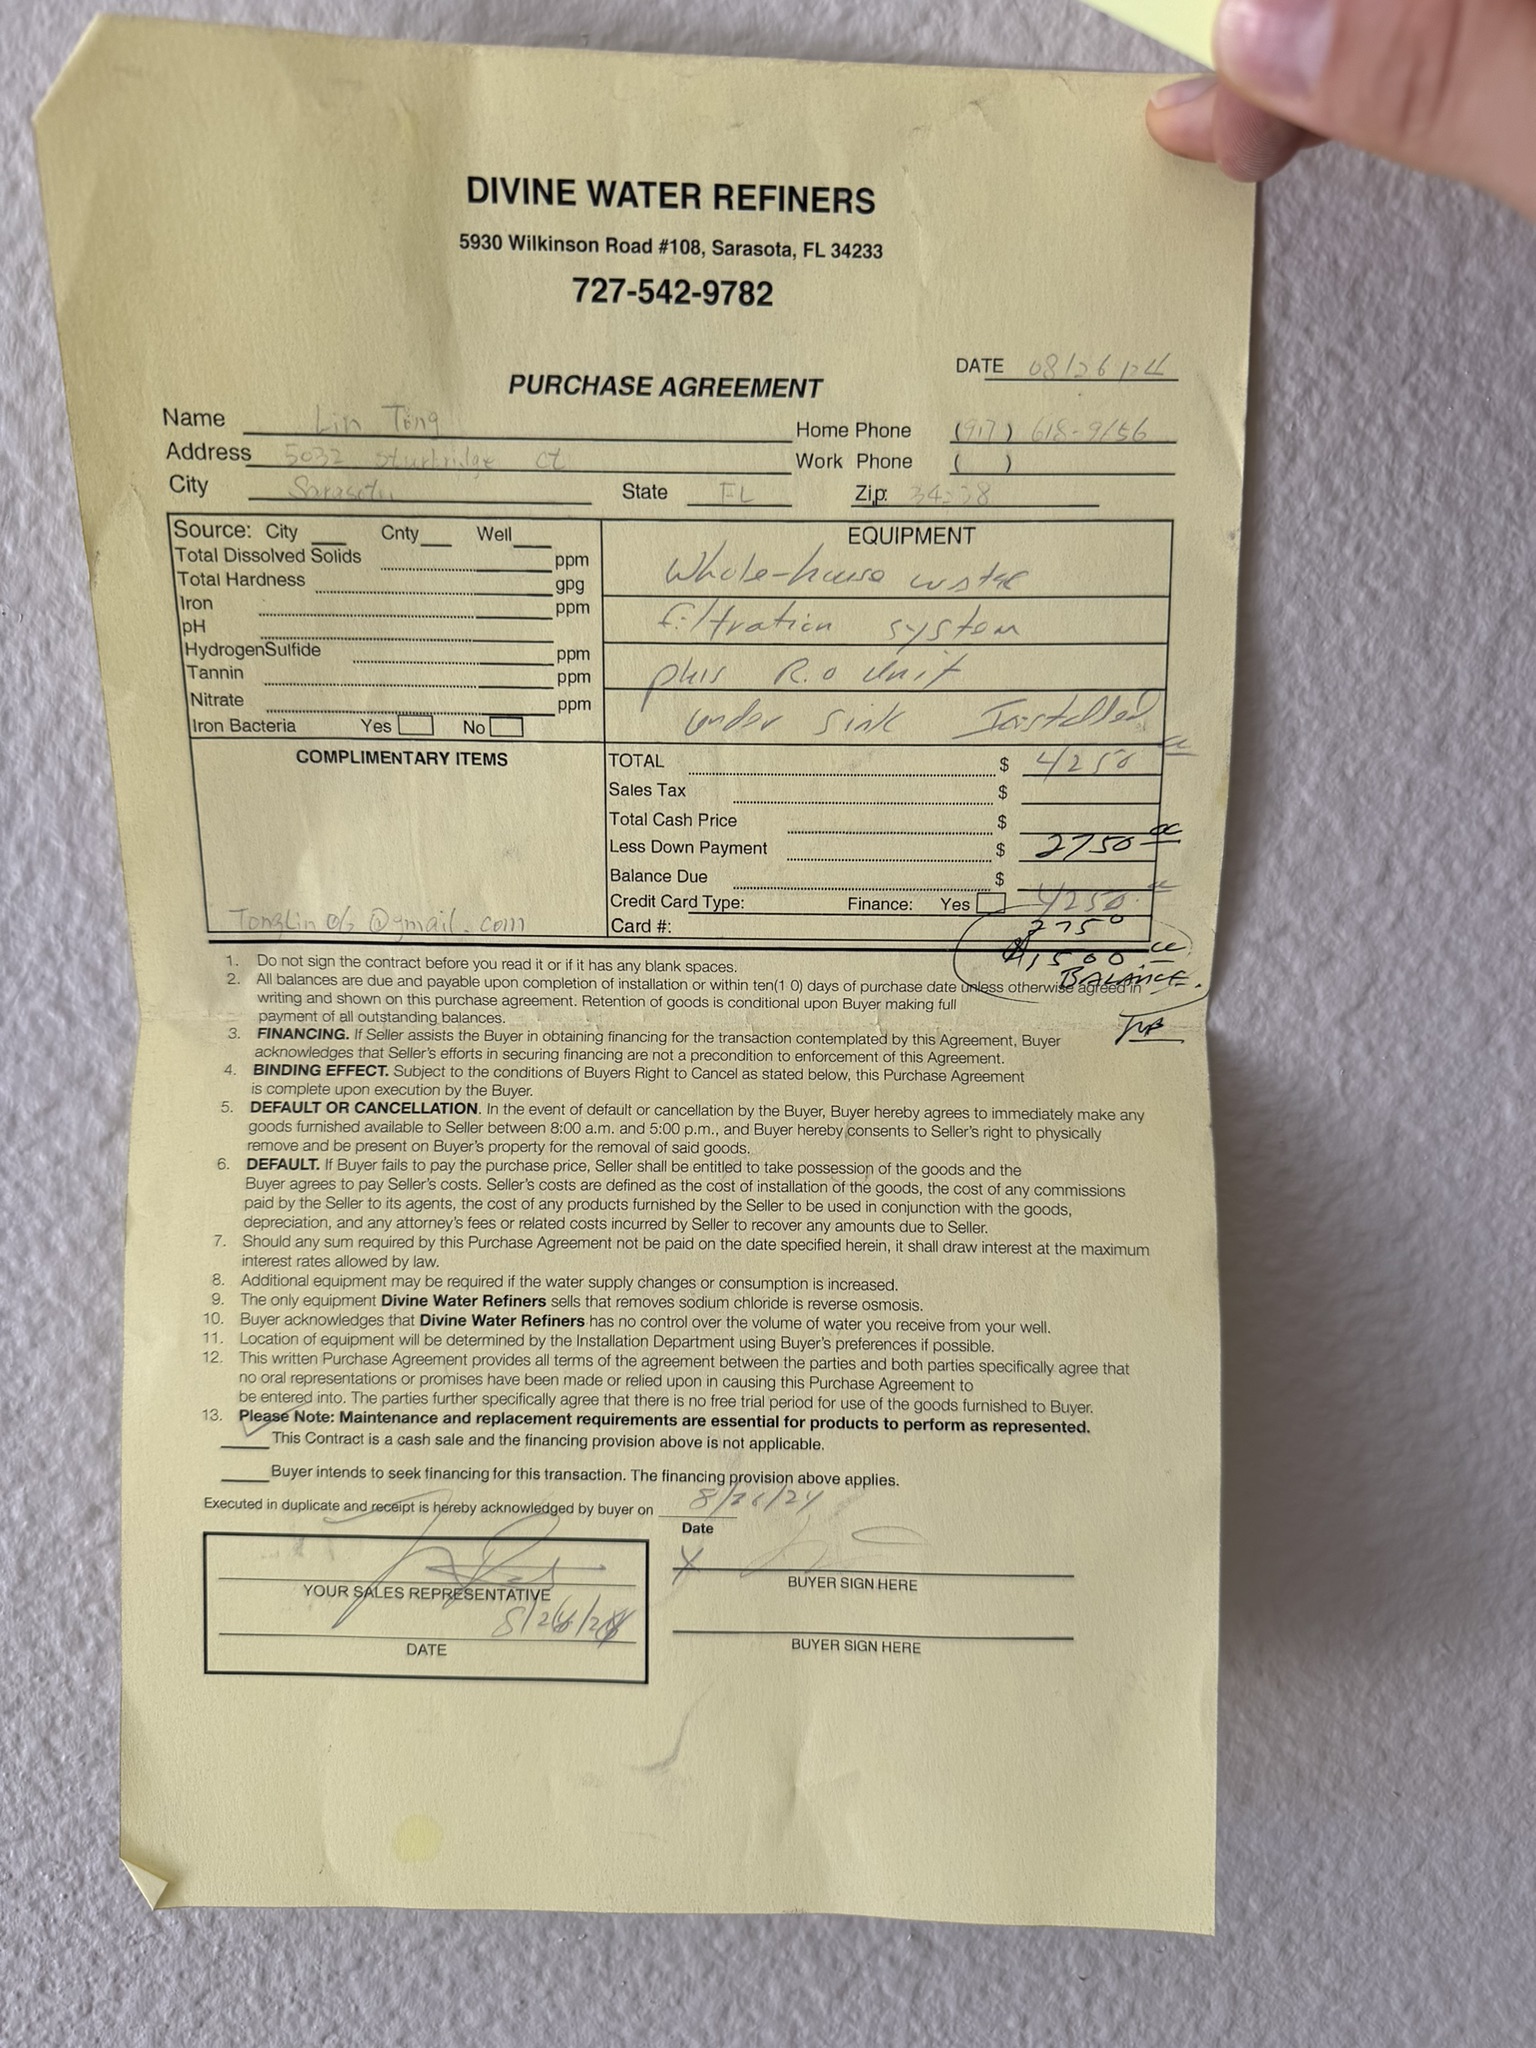 DIVINE WATER REFINERS
5930 Wilkinson Road #108, Sarasota, FL 34233
727-542-9782
DATE 08/26/24
PURCHASE AGREEMENT
Name Lin Tong
Home Phone (917) 618-9156
Address 5032 Sturbridge ct
Work Phone ( )
City Sarasota State FL Zip: 34238
Source: City Cnty Well
Total Dissolved Solids ppm
Total Hardness gpg
Iron ppm
pH
HydrogenSulfide ppm
Tannin ppm
Nitrate ppm
Iron Bacteria Yes No
EQUIPMENT
Whole-house water
filtration system
plus R.O unit
under sink Installed
COMPLIMENTARY ITEMS
TongLin06@gmail.com
TOTAL $ 4250
Sales Tax $
Total Cash Price $
Less Down Payment $ 2750
Balance Due $
Credit Card Type: Finance: Yes 4250
Card #: 2750
$1,500
BALANCE
1. Do not sign the contract before you read it or if it has any blank spaces.
2. All balances are due and payable upon completion of installation or within ten(1 0) days of purchase date unless otherwise agreed in
writing and shown on this purchase agreement. Retention of goods is conditional upon Buyer making full
payment of all outstanding balances.
3. FINANCING. If Seller assists the Buyer in obtaining financing for the transaction contemplated by this Agreement, Buyer
acknowledges that Seller's efforts in securing financing are not a precondition to enforcement of this Agreement.
4. BINDING EFFECT. Subject to the conditions of Buyers Right to Cancel as stated below, this Purchase Agreement
is complete upon execution by the Buyer.
5. DEFAULT OR CANCELLATION. In the event of default or cancellation by the Buyer, Buyer hereby agrees to immediately make any
goods furnished available to Seller between 8:00 a.m. and 5:00 p.m., and Buyer hereby consents to Seller's right to physically
remove and be present on Buyer's property for the removal of said goods.
6. DEFAULT. If Buyer fails to pay the purchase price, Seller shall be entitled to take possession of the goods and the
Buyer agrees to pay Seller's costs. Seller's costs are defined as the cost of installation of the goods, the cost of any commissions
paid by the Seller to its agents, the cost of any products furnished by the Seller to be used in conjunction with the goods,
depreciation, and any attorney's fees or related costs incurred by Seller to recover any amounts due to Seller.
7. Should any sum required by this Purchase Agreement not be paid on the date specified herein, it shall draw interest at the maximum
interest rates allowed by law.
8. Additional equipment may be required if the water supply changes or consumption is increased.
9. The only equipment Divine Water Refiners sells that removes sodium chloride is reverse osmosis.
10. Buyer acknowledges that Divine Water Refiners has no control over the volume of water you receive from your well.
11. Location of equipment will be determined by the Installation Department using Buyer's preferences if possible.
12. This written Purchase Agreement provides all terms of the agreement between the parties and both parties specifically agree that
no oral representations or promises have been made or relied upon in causing this Purchase Agreement to
be entered into. The parties further specifically agree that there is no free trial period for use of the goods furnished to Buyer.
13. Please Note: Maintenance and replacement requirements are essential for products to perform as represented.
This Contract is a cash sale and the financing provision above is not applicable.
Buyer intends to seek financing for this transaction. The financing provision above applies.
Executed in duplicate and receipt is hereby acknowledged by buyer on 8/26/24
Date
YOUR SALES REPRESENTATIVE
8/26/24
DATE
X
BUYER SIGN HERE
BUYER SIGN HERE